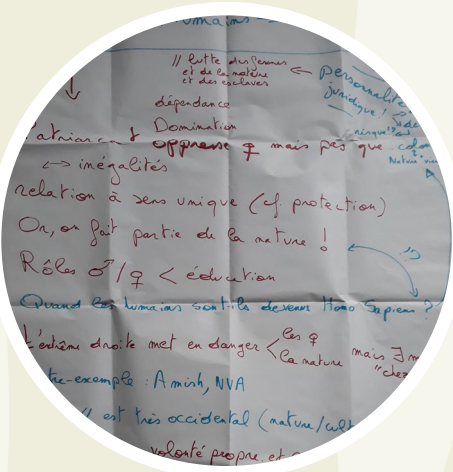 umains
// lutte des femmes
et de la nature
et des esclaves
← personnalité
juridique !
dépendance
Domination
Patriarcat opprime ♀ mais pas que
colon
Nature
↔ inégalités
relation à sens unique (cf. protection)
Or, on fait partie de la nature !
Rôles ♂/♀ < éducation
Quand les humains sont-ils devenus Homo Sapiens ?
L'extrême droite met en danger < les ♀
la nature
mais ∃ m
"chez
tre-exemple : Amish, NVA
// est très occidental (nature/cult
volonté propre et